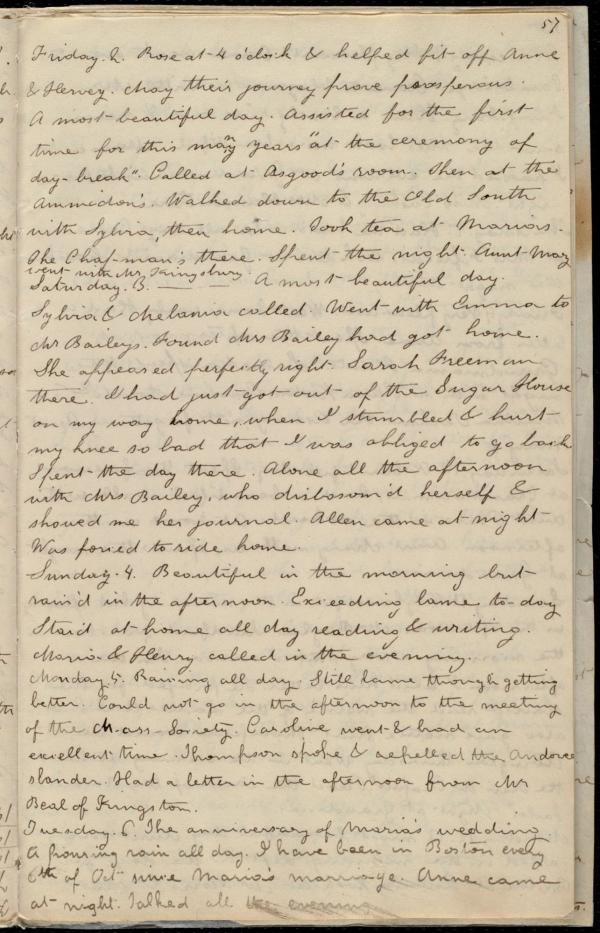 57
Friday. 2. Rose at 4 o'clock & helped fit off Anne
& Hervey. May their journey prove prosperous.
A most beautiful day. Assisted for the first
time for this many years "at the ceremony of
day-break". Called at Asgood's room. Then at the
Ammidon's. Walked down to the Old South
with Sylvia, then home. Took tea at Marias.
The Chapman's there. Spent the night. Aunt Mary
went with Mr Kingsbury.
Saturday. 3. A most beautiful day.
Sylvia & Melania called. Went with Emma to
Mr Baileys. Found Mrs Bailey had got home.
She appeared perfectly right. Sarah Freeman
there. I had just got out of the Sugar House
on my way home, when I stumbled & hurt
my knee so bad that I was obliged to go back
Spent the day there. Alone all the afternoon
with Mrs Bailey, who disbosom'd herself &
showed me her journal. Allen came at night
Was forced to ride home.
Sunday. 4. Beautiful in the morning but
rain'd in the afternoon. Exceeding lame to-day
Staid at home all day reading & writing.
Maria & Henry called in the evening.
Monday. 5. Raining all day. Still lame though getting
better. Could not go in the afternoon to the meeting
of the Mass- Society. Caroline went & had an
excellent time. Thompson spoke & repelled the Andover
slander. Had a letter in the afternoon from Mr
Beal of Kingston.
Tuesday. 6. The anniversary of Maria's wedding.
A pouring rain all day. I have been in Boston every
6th of Oct since Maria's marriage. Anne came
at night. Talked all the evening